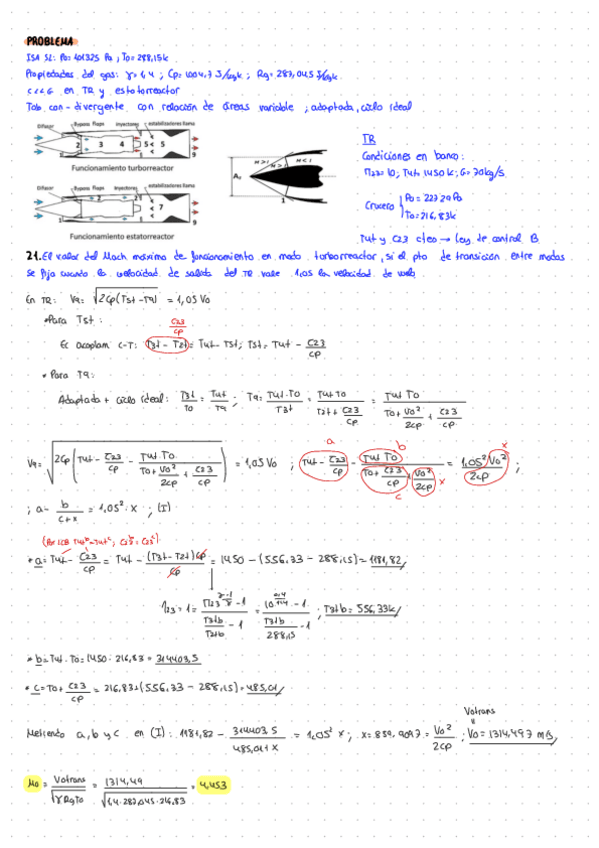 PROBLEMA
ISA SL: P0 = 101325 Pa ; T0 = 288,15k
Propiedades del gas: γ = 1,4 ; Cp = 1004,7 J/kgk ; Rg = 287,045 J/kgk
c<<G en TR y estatorreactor
Tob. con-divergente con relación de áreas variable ; adaptada, ciclo ideal
Difusor Bypass Flaps Inyectores estabilizadores llama
2 3 4 5 < 5 9
Funcionamiento turborreactor
Difusor Bypass Flaps Inyectores estabilizadores llama
2 < 7 9
Funcionamiento estatorreactor
A0 M>1 M>1 M<1
1
TR
Condiciones en banco:
π23 = 10; T4t = 1450k; G = 70kg/s
Crucero { P0 = 22729 Pa
T0 = 216,83k
T4t y τ23 cteo → Ley de control B
21. El valor del Mach máximo de funcionamiento en modo turborreactor, si el pto de transición entre modos
se fija cuando la velocidad de salida del TR vale 1,05 la velocidad de vuelo
En TR: V9 = √2Cp(T5t-T9) = 1,05 V0
• Para T5t:
τ23
cp
Ec acoplam C-T: T3t - T2t = T4t - T5t; T5t = T4t - τ23/cp
• Para T9:
Adaptada + ciclo ideal: T3t/T0 = T4t/T9 ; T9 = T4t·T0/T3t = T4t T0/(T2t + τ23/cp) = T4t T0/(T0 + V0²/2cp + τ23/cp)
a b x
V9 = √2Cp(T4t - τ23/cp - T4t T0/(T0 + V0²/2cp + τ23/cp)) = 1,05 V0 ; T4t - τ23/cp - T4t T0/(T0 + τ23/cp + V0²/2cp) = 1,05² V0²/2cp ;
c x
; a - b/(c+x) = 1,05² · x ; (I)
(Por LCB T4t^b = T4t^c ; τ23^b = τ23^c)
* a = T4t - τ23/cp = T4t - (T3t - T2t)cp/cp = 1450 - (556,33 - 288,15) = 1181,82
η23 = 1 = (π23^(γ-1/γ) - 1)/(T3tb/T2tb - 1) = (10^(0,4/1,4) - 1)/(T3tb/288,15 - 1) ; T3tb = 556,33k
* b = T4t · T0 = 1450 · 216,83 = 314403,5
* c = T0 + τ23/cp = 216,83 + (556,33 - 288,15) = 485,01
V0trans
Metiendo a, b y c en (I): 1181,82 - 314403,5/(485,01 + x) = 1,05² x ; x = 859,9097 = V0²/2cp ; V0 = 1314,497 m/s
M0 = V0trans/√γRgT0 = 1314,49/√1,4·287,045·216,83 = 4,453